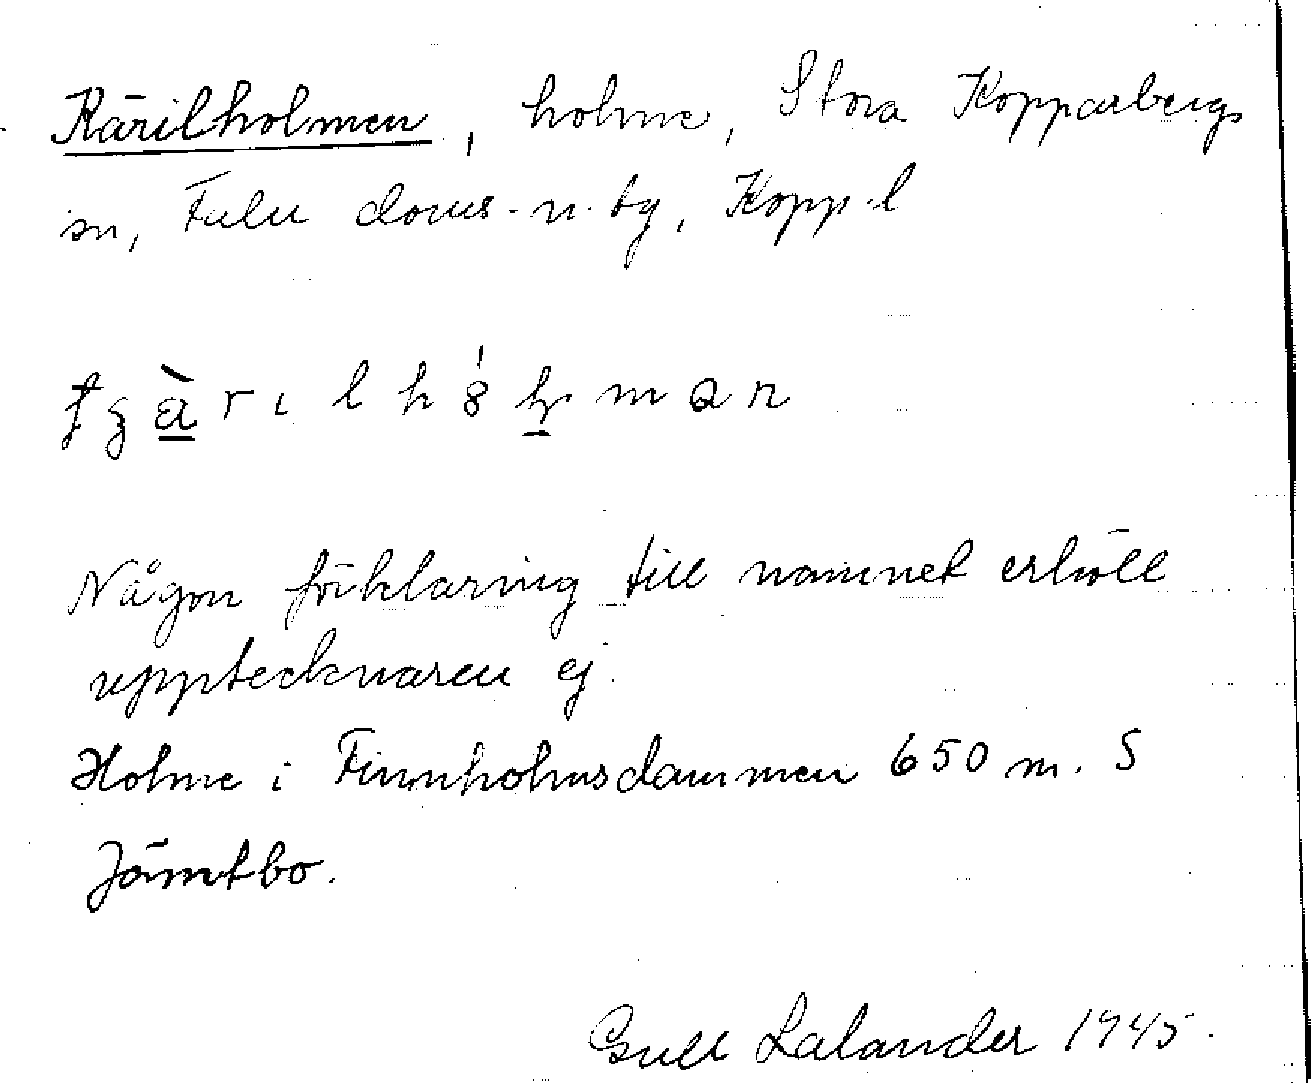 Kärilholmen, holme, Stora Kopparbergs
sn, Falu doms. n. tg, Kopp. l
Någon förklaring till namnet erhöll
upptecknaren ej.
Holme i Finnholmsdammen 650 m. S
Jämtbo.
Gull Lalander 1945.